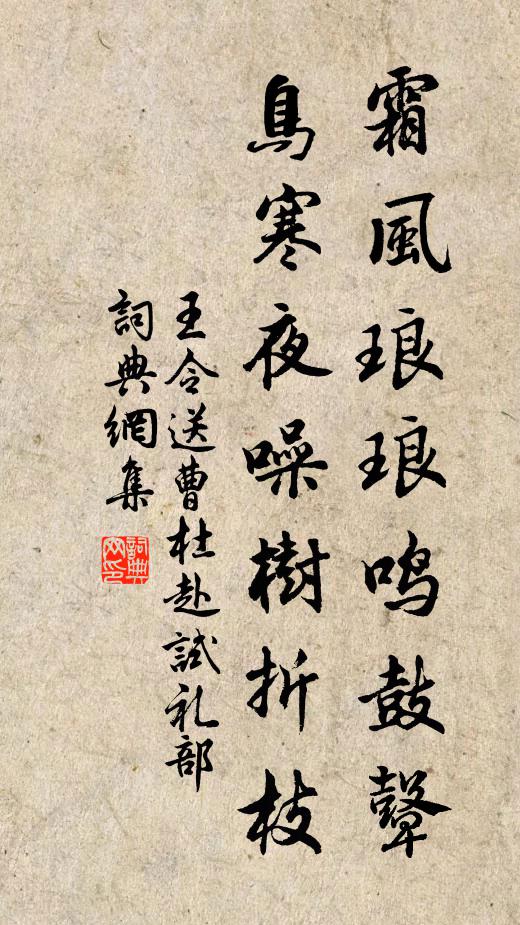 霜風琅琅鸣鼓鼙
鳥寒夜噪樹折枝
王令送曹杜赴試礼部
詞典網集
詞典网印